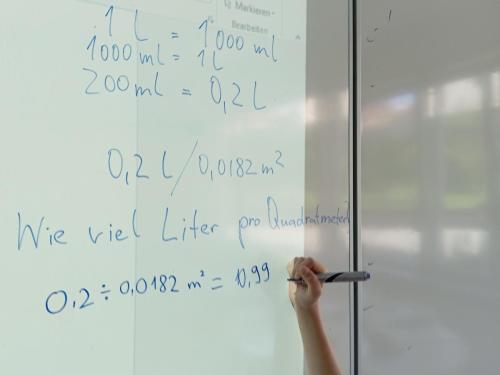 Markieren
Bearbeiten
1 L = 1000 ml
1000 ml = 1 L
200 ml = 0,2 L
0,2 L / 0,0182 m²
Wie viel Liter pro Quadratmeter?
0,2 ÷ 0,0182 m² = 10,99